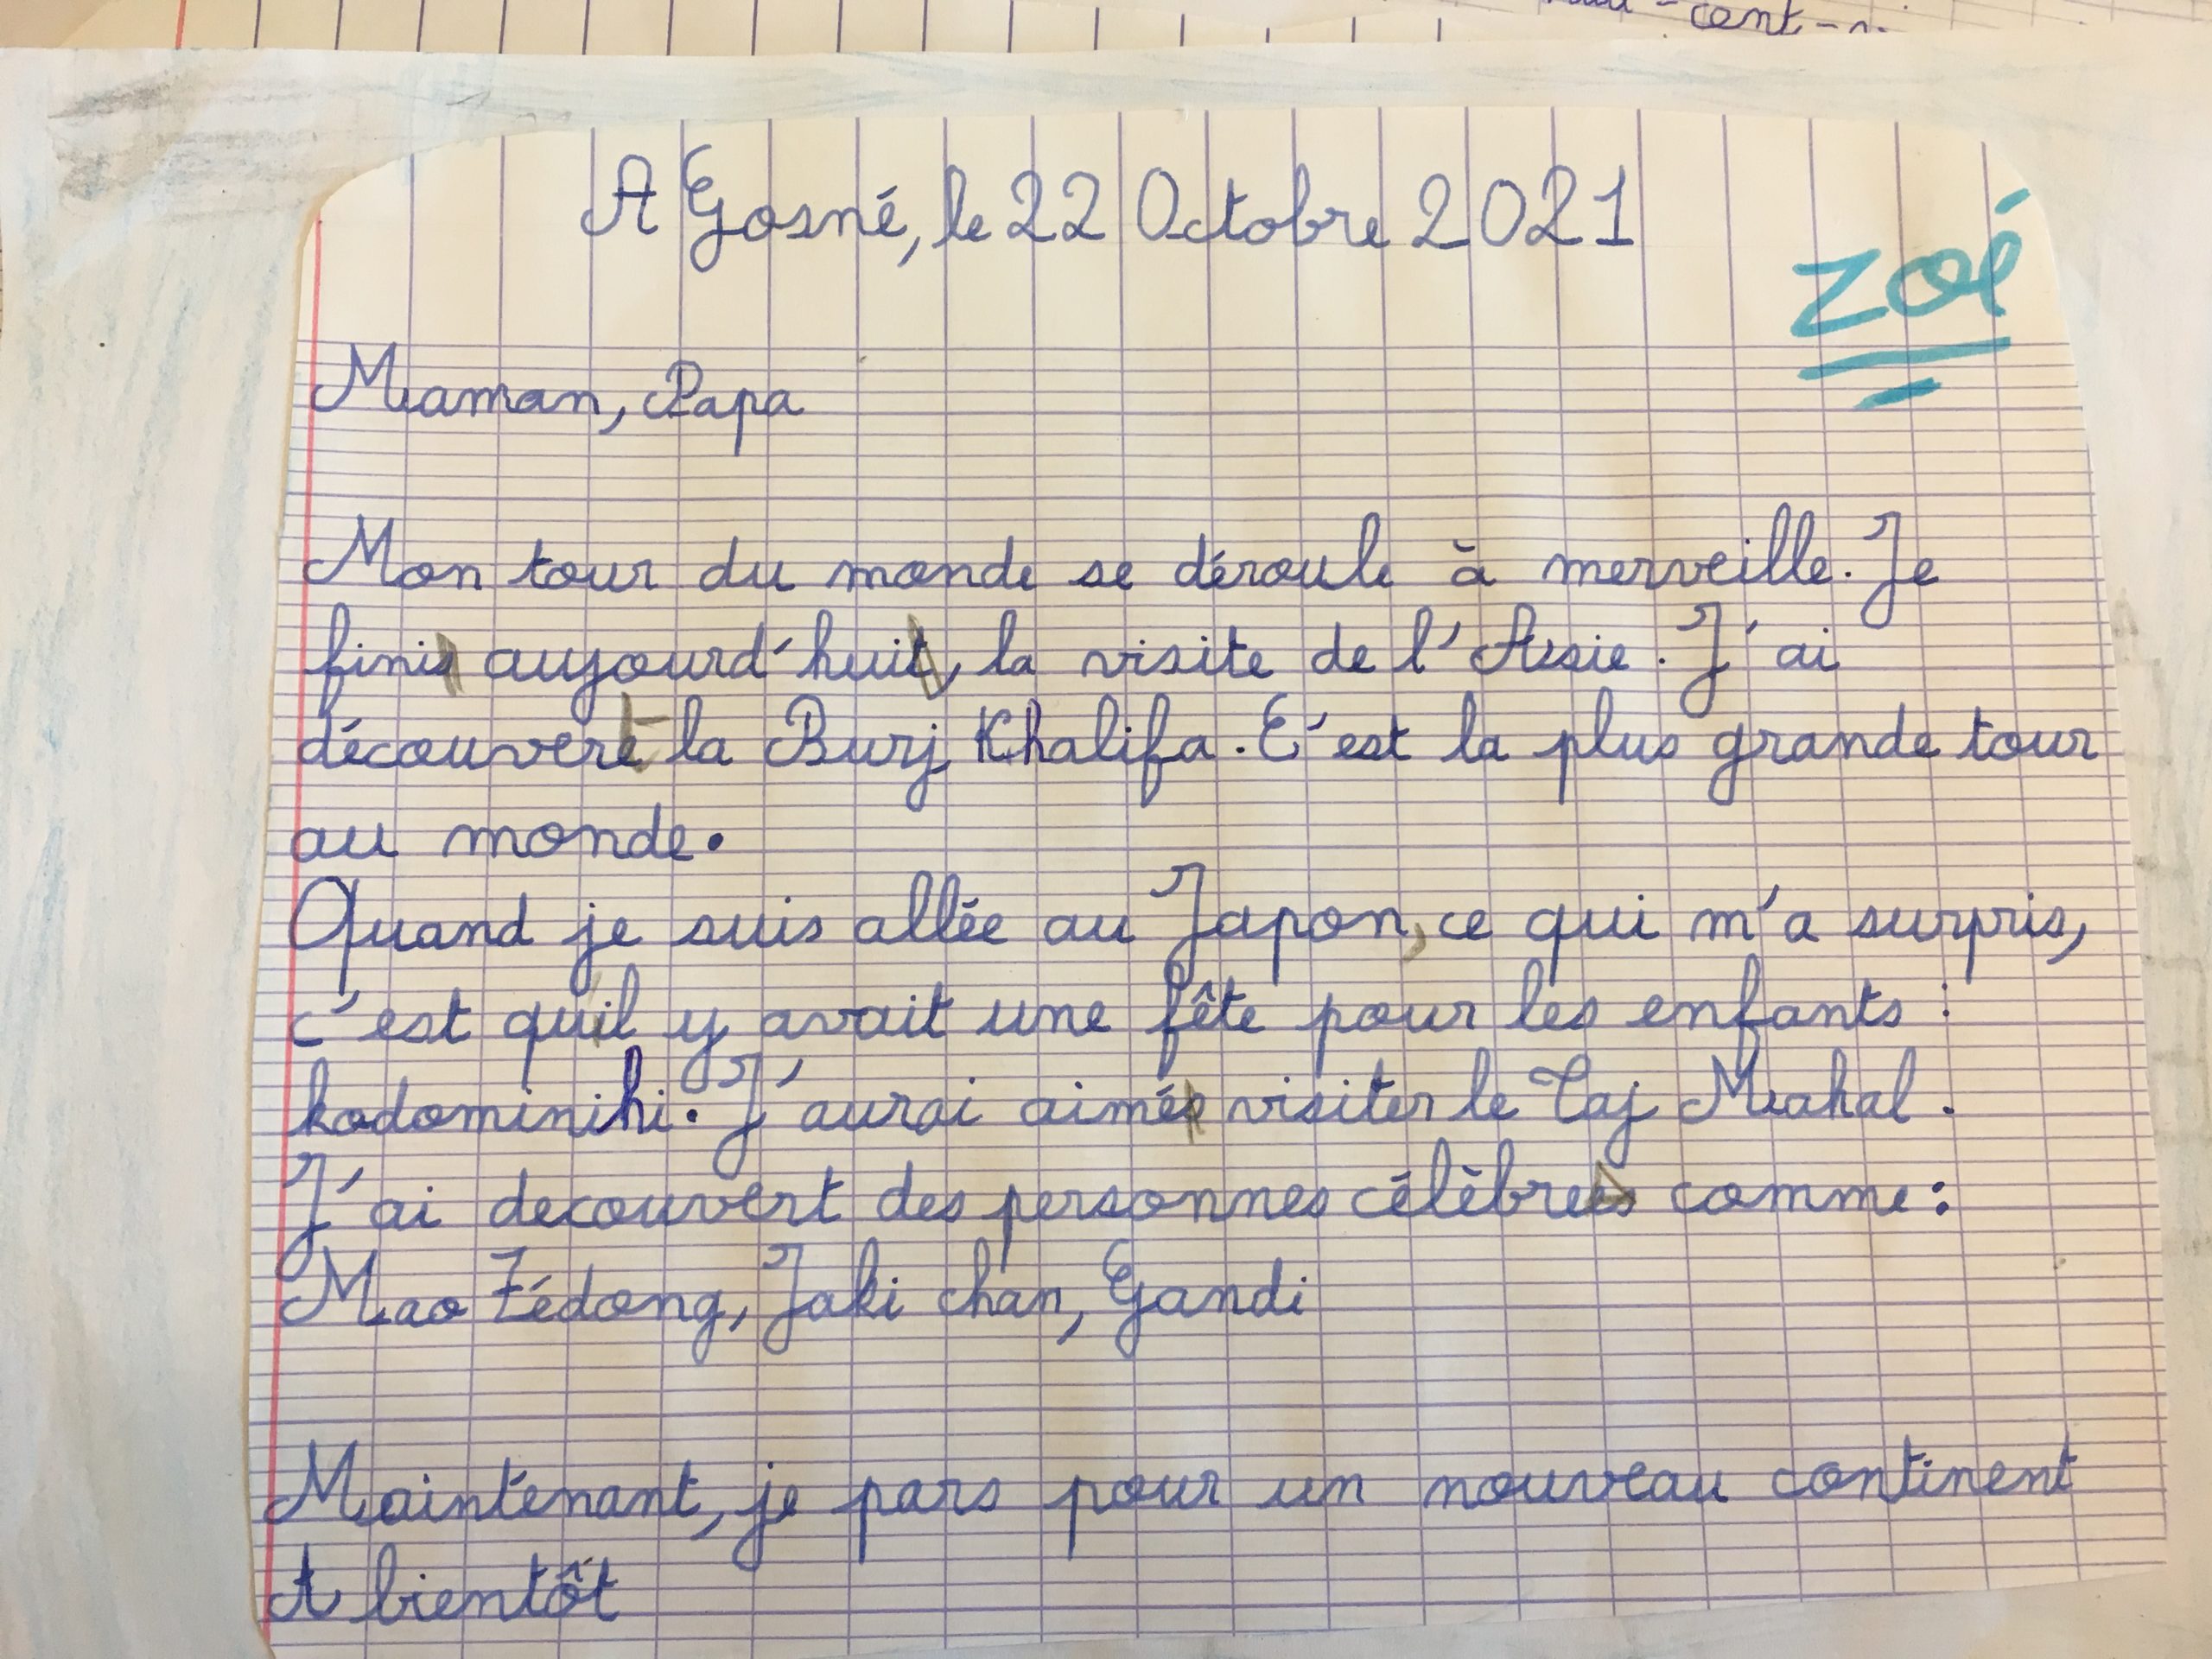 A Gosné, le 22 Octobre 2021
Zoé
Maman, Papa
Mon tour du monde se déroule à merveille. Je
finis aujourd'huit, la visite de l'Asie. J'ai
découvert la Burj Khalifa. C'est la plus grande tour
au monde.
Quand je suis allée au Japon, ce qui m'a surpris,
c'est qu'il y avait une fête pour les enfants :
kodominihi. J'aurai aimé visiter le Taj Mahal.
J'ai decouvert des personnes célèbres comme :
Mao Zédong, Jaki chan, Gandi
Maintenant, je pars pour un nouveau continent
A bientôt